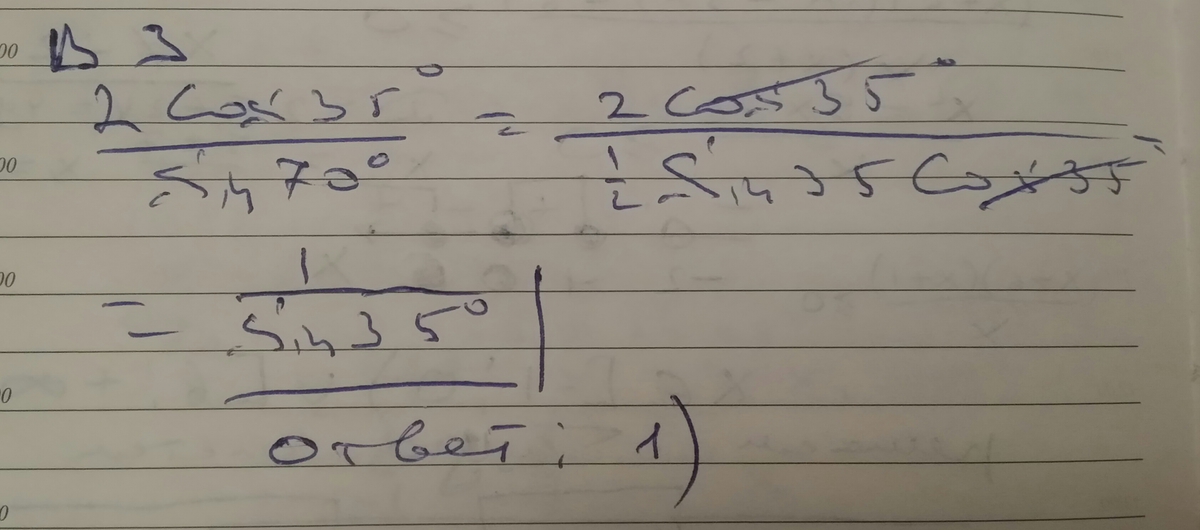 В 3
2 Cos 35° / Sin 70° = 2 Cos 35° / 1/2 Sin 35 Cos 35 =
= 1 / Sin 35°
ответ: 1)